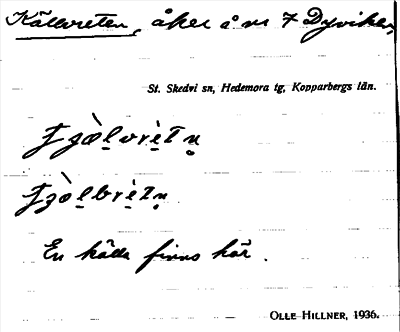 Källvreten, åker å nr 7 Dyviken,
St. Skedvi sn, Hedemora tg, Kopparbergs län.
En källa finns här.
OLLE HILLNER, 1936.